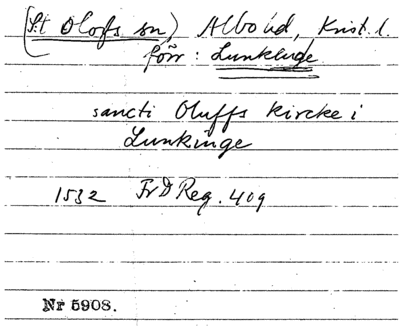 (S:t Olofs sn) Albo hd, Krist. l.
förr: Lunkende
sancti Oluffs kircke i
Lunkinge
1532 Fr D Reg. 409
Nr 5908.